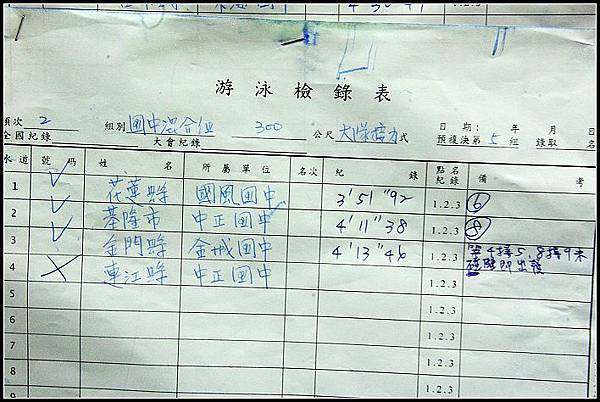 游泳檢錄表
項次 2 組別 國中混介組 300 公尺 大隊接力 式 日期： 年 月 日
全國紀錄 大會紀錄 預複決第 5 組 錄取 名
水道 號碼 姓名 所屬單位 名次 紀錄 點名紀錄 備考
1 ✓ 花蓮縣 國風國中 3'51"92 1.2.3 ⑥
2 ✓ 基隆市 中正國中 4'11"38 1.2.3 ⑧
3 ✓ 金門縣 金城國中 4'13"46 1.2.3 第4接5,8接9未
4 ✗ 連江縣 中正國中 1.2.3 碰牆即出發
5 1.2.3
6 1.2.3
7 1.2.3
8 1.2.3
9